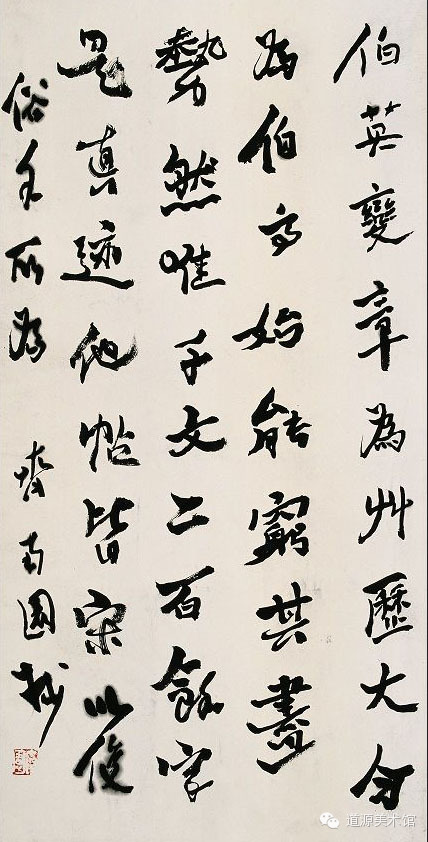 伯英變章為艸歷大令
為伯高始能窮其畫
勢然唯千文二百餘字
是真迹他帖皆宋以後
俗手所為 南園
道源美术馆